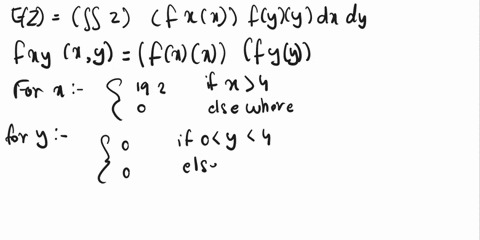 E(Z) = (∫∫ 2) (f x (x)) f(y)(y) dx dy
fxy (x,y) = (f(x)(x)) (fy(y))
For x :- { 192 if x > 4
0 else where
for y :- { 0 if 0 < y < 4
0 els